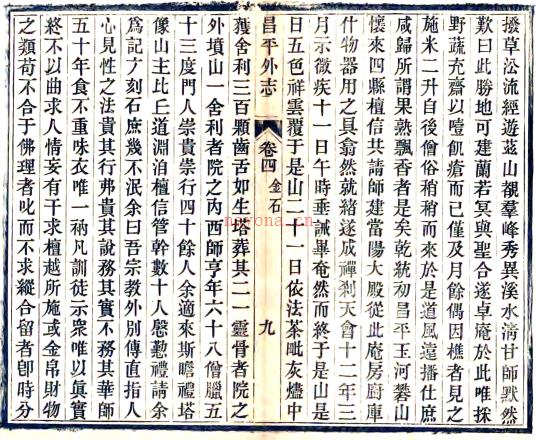 撥草沿流經遊茲山覩羣峰秀異溪水清甘師默然
歎曰此勝地可建蘭若冥與聖合遂卓庵於此唯採
野蔬充齋以噎飢瘡而已僅及月餘偶因樵者見之
施米二升自後僧俗稍稍而來於是道風遠播仕庶
咸歸所謂果熟飄香者是矣乾統初昌平玉河礬山
懷來四縣檀信共請師建當陽大殿從此庵房厨庫
什物器用之具翕然就緒遂成禪剎天會十二年三
月示微疾十一日午時垂誡畢奄然而終于是山是
日五色祥雲覆于是山二十一日依法茶毗灰燼中
昌平外志
卷四 金石
九
獲舍利三百顆齒舌如生塔葬其二一靈骨者院之
外墳山一舍利者院之内西師亨年六十八僧臘五
十三度門人崇貴崇行四十餘人余適來斯瞻禮塔
像山主比丘道淵泊檀信管幹數十人慇懃禮請余
為記方刻石庶幾不泯余曰吾宗教外別傳直指人
心見性之法貴其行弗貴其說務其實不務其華師
五十年食不重味衣唯一衲凡訓徒示眾唯以眞實
終不以曲求人情妄有干求檀越所施或金帛財物
之類苟不合于佛理者叱而不求縱合留者卽時分